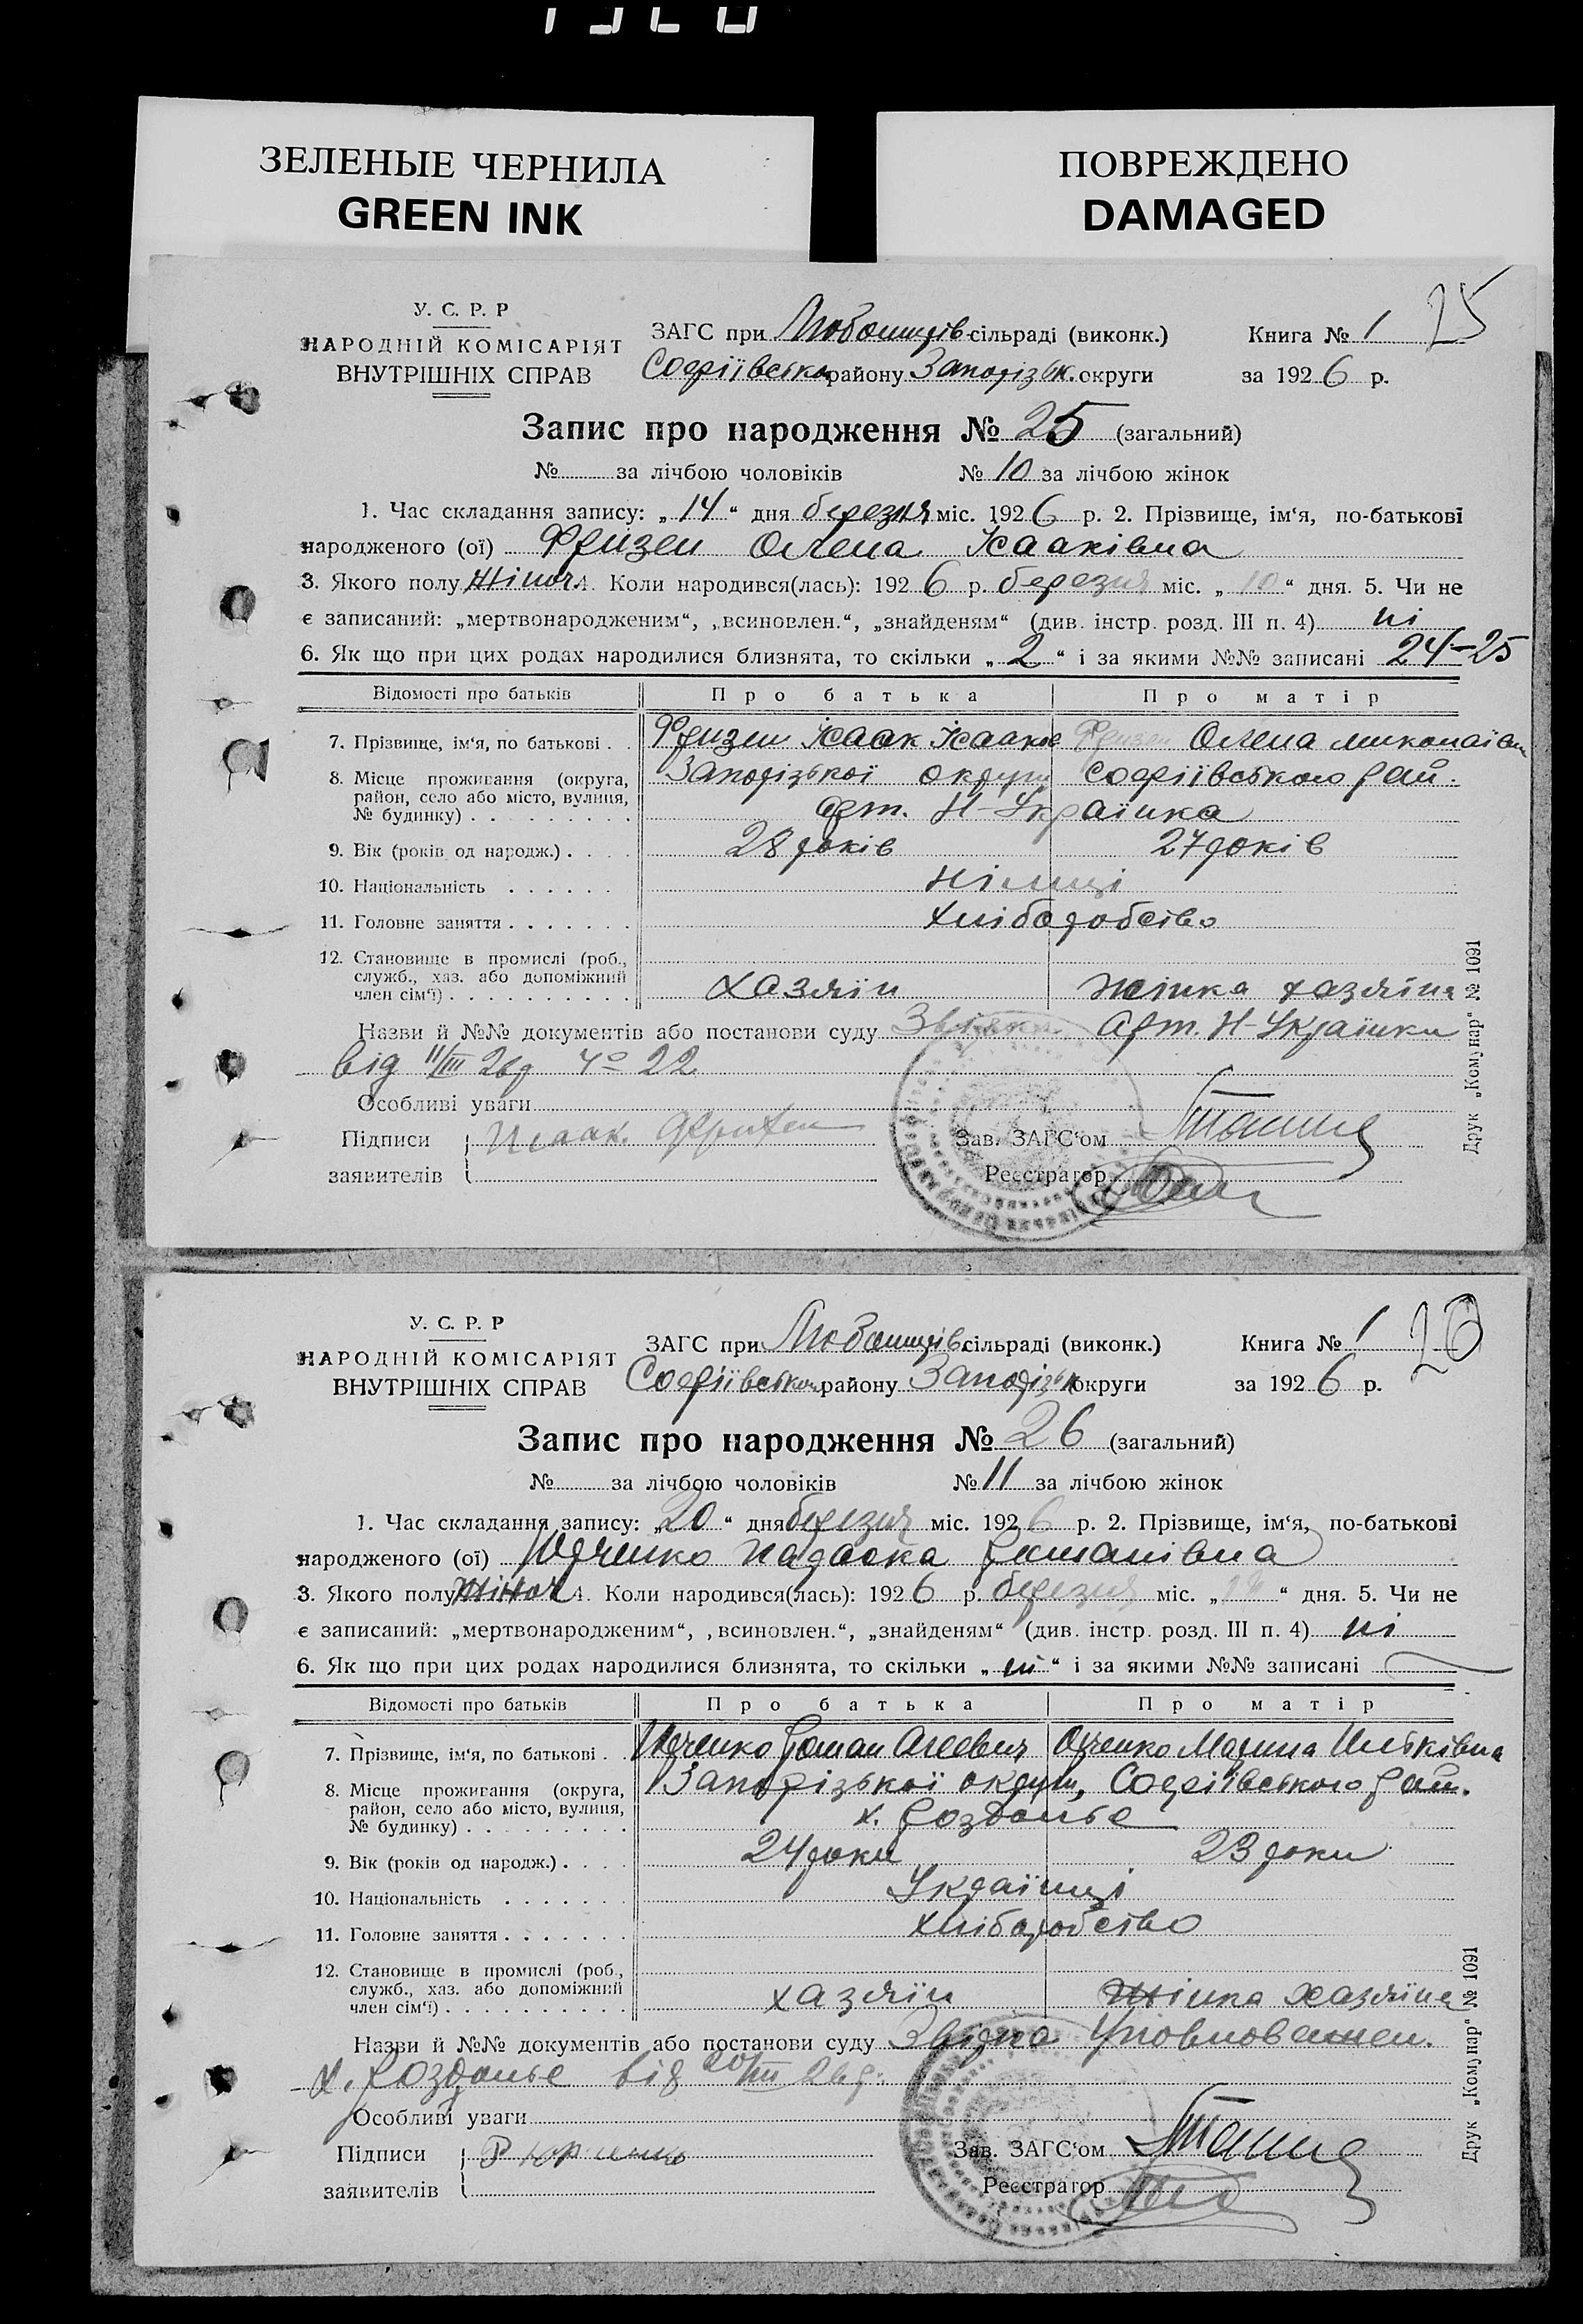 1926
ЗЕЛЕНЫЕ ЧЕРНИЛА
GREEN INK
ПОВРЕЖДЕНО
DAMAGED
У. С. Р. Р
НАРОДНІЙ КОМІСАРІЯТ
ВНУТРІШНІХ СПРАВ
ЗАГС при Любомирів. сільраді (виконк.)
Софіївськ. району Запоріз. округи
Книга № 1 25
за 1926 р.
Запис про народження № 25 (загальний)
№ за лічбою чоловіків № 10 за лічбою жінок
1. Час складання запису: „14“ дня березня міс. 1926 р. 2. Прізвище, ім‘я, по-батькові
народженого (ої) Фризен Олена Ісааківна
3. Якого полу жіноч. 4. Коли народився(лась): 1926 р. березня міс. „10“ дня. 5. Чи не
є записаний: „мертвонародженим“, „всиновлен.“, „знайденям“ (див. інстр. розд. III п. 4) ні
6. Як що при цих родах народилися близнята, то скільки „2“ і за якими №№ записані 24-25
Відомості про батьків Про батька Про матір
7. Прізвище, ім‘я, по батькові . . Фризен Ісаак Ісааков Фризен Олена Миколаївн
8. Місце проживання (округа, район, село або місто, вулиця, № будинку) Запорізької округи Софіївського рай.
арт. Н-Українка
9. Вік (років од народж.) . . . . 28 років 27 років
10. Національність . . . . . . німці
11. Головне заняття . . . . . . . хліборобство
12. Становище в промислі (роб., служб., хаз. або допоміжний член сім‘ї) . . . . . . . . . . хазяїн жінка хазяїна
Назви й №№ документів або постанови суду Звідка Арт. Н-Українки
від 11/III 26р № 22
Особливі уваги
Підписи
заявителів
Исаак. Фризен
Зав. ЗАГС‘ом
Реєстратор
Друк „Комунар“ № 1091
У. С. Р. Р
НАРОДНІЙ КОМІСАРІЯТ
ВНУТРІШНІХ СПРАВ
ЗАГС при Любомирів. сільраді (виконк.)
Софіївськ. району Запорізьк округи
Книга № 1 26
за 1926 р.
Запис про народження № 26 (загальний)
№ за лічбою чоловіків № 11 за лічбою жінок
1. Час складання запису: „20“ дня березня міс. 1926 р. 2. Прізвище, ім‘я, по-батькові
народженого (ої) Юрченко Параска Романівна
3. Якого полу жіноч 4. Коли народився(лась): 1926 р. березня міс. „ “ дня. 5. Чи не
є записаний: „мертвонародженим“, „всиновлен.“, „знайденям“ (див. інстр. розд. III п. 4) ні
6. Як що при цих родах народилися близнята, то скільки „ні“ і за якими №№ записані
Відомості про батьків Про батька Про матір
7. Прізвище, ім‘я, по батькові . . Юрченко Роман Юрченко Марина
8. Місце проживання (округа, район, село або місто, вулиця, № будинку) Запорізької округи, Софіївського рай.
х. Роздолье
9. Вік (років од народж.) . . . . 24 роки 23 роки
10. Національність . . . . . . . Українці
11. Головне заняття . . . . . . . хліборобство
12. Становище в промислі (роб., служб., хаз. або допоміжний член сім‘ї) . . . . . . . . . . хазяїн жінка хазяїна
Назви й №№ документів або постанови суду Звідка Уповноважен.
х. Роздолье від 20/III 26р.
Особливі уваги
Підписи
заявителів
Зав. ЗАГС‘ом
Реєстратор
Друк „Комунар“ № 1091